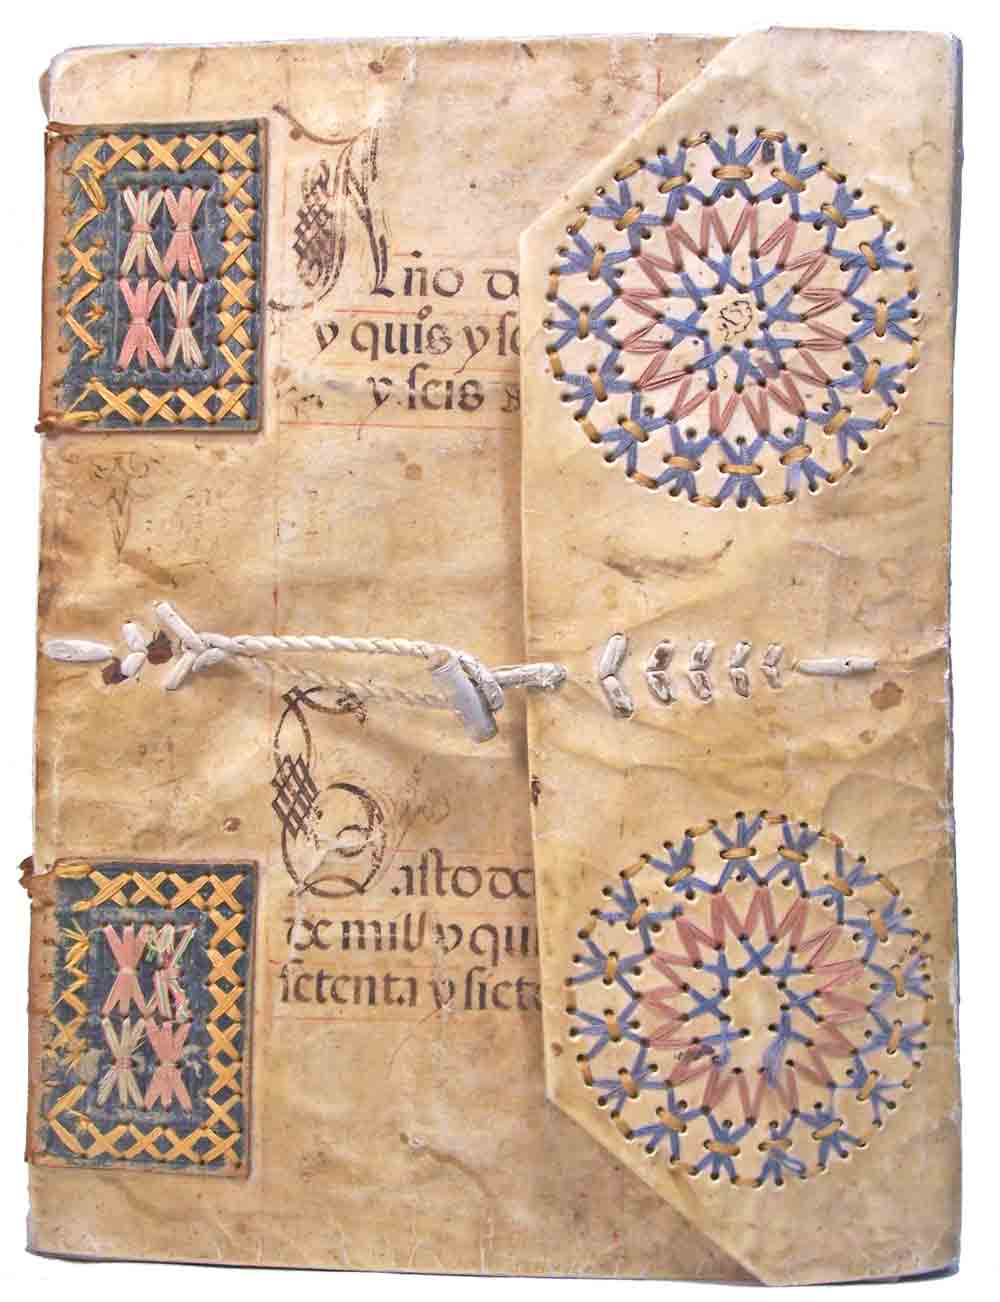 Año de
y quis y se
y seis
Gasto de
de mill y qui
setenta y siete